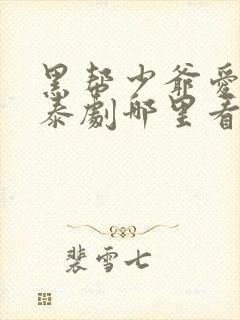 黑帮少爷爱
泰剧哪里看
裴雪七